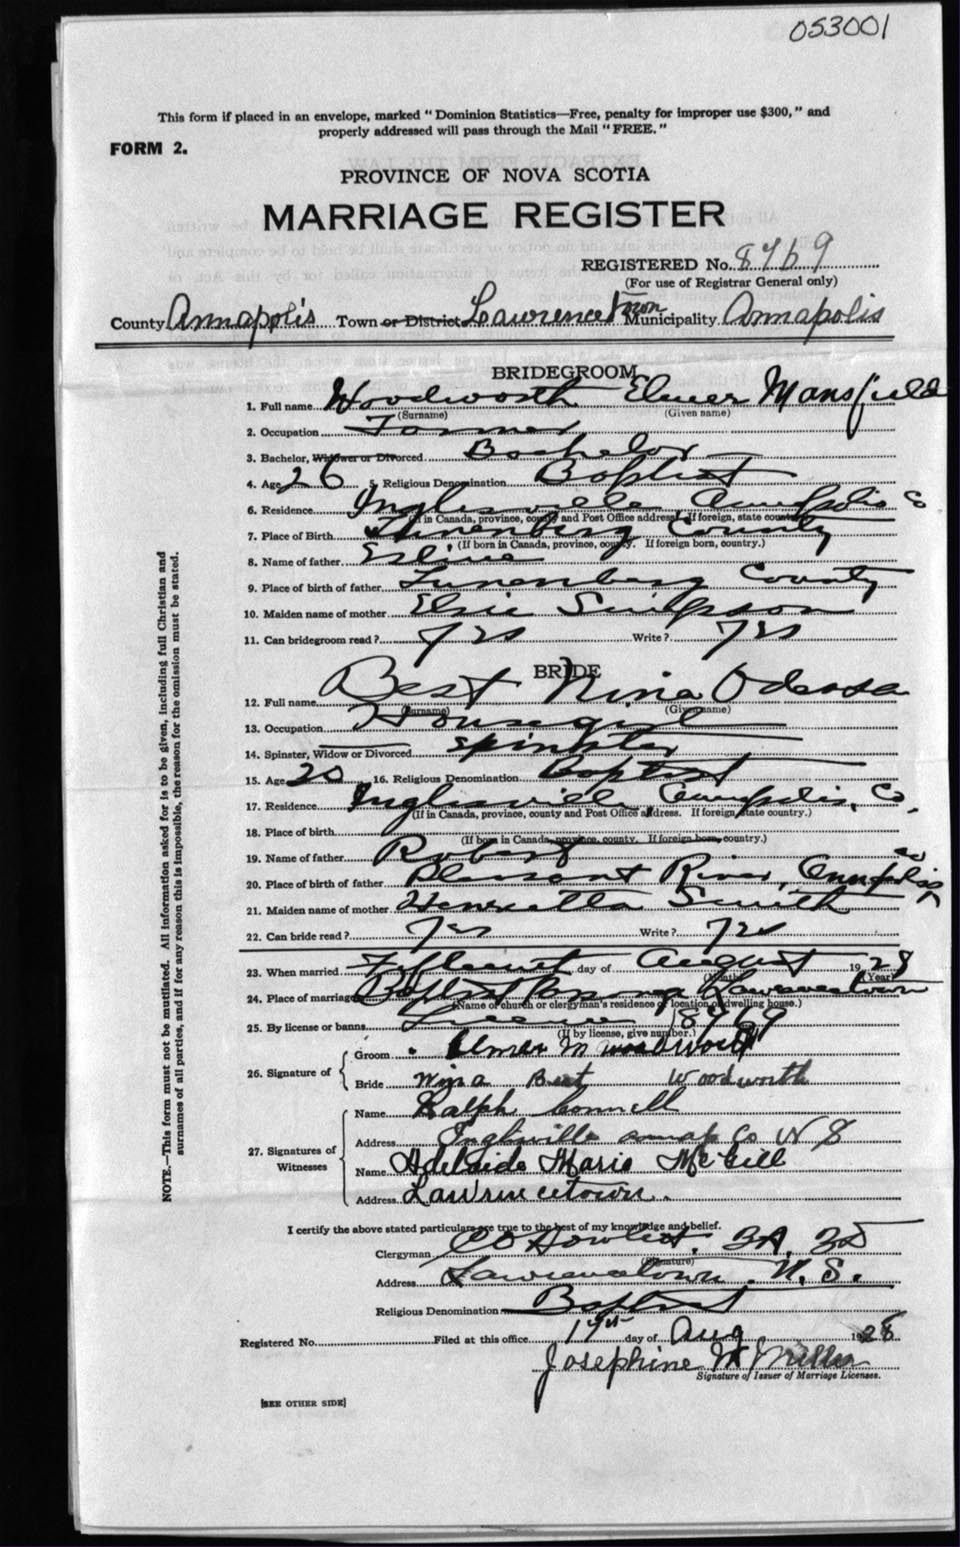 053001
This form if placed in an envelope, marked "Dominion Statistics—Free, penalty for improper use $300," and
properly addressed will pass through the Mail "FREE."
FORM 2.
PROVINCE OF NOVA SCOTIA
MARRIAGE REGISTER
REGISTERED No. 8769
(For use of Registrar General only)
County Annapolis Town or District Lawrencetown Municipality Annapolis
BRIDEGROOM
1. Full name Woodworth Elmer Mansfield
(Surname) (Given name)
2. Occupation Farmer
3. Bachelor, Widower or Divorced Bachelor
4. Age 26 5. Religious Denomination Baptist
6. Residence Inglesville Annapolis Co
(If in Canada, province, county and Post Office address. If foreign, state country.)
7. Place of Birth Lunenberg County
(If born in Canada, province, county. If foreign born, country.)
8. Name of father
9. Place of birth of father Lunenberg County
10. Maiden name of mother Elsie Simpson
11. Can bridegroom read? yes Write? yes
BRIDE
12. Full name Best Nina Odessa
(Surname) (Given name)
13. Occupation Housegirl
14. Spinster, Widow or Divorced spinster
15. Age 20 16. Religious Denomination Baptist
17. Residence Inglesville Annapolis, Co,
(If in Canada, province, county and Post Office address. If foreign, state country.)
18. Place of birth
(If born in Canada, province, county. If foreign born, country.)
19. Name of father Robert
20. Place of birth of father Pleasant River, Annapolis Co
21. Maiden name of mother Henrietta Smith
22. Can bride read? yes Write? yes
23. When married Fifteenth day of August 1928
(Month) (Year)
24. Place of marriage Baptist Parsonage Lawrencetown
(Name of church or clergyman's residence or location of dwelling house.)
25. By license or banns License 8769
(If by license, give number.)
26. Signature of Groom Elmer M Woodworth
Bride Nina Best Woodworth
27. Signatures of Witnesses
Name Ralph Connell
Address Inglisville annap Co N S
Name Adelaide Marie McGill
Address Lawrencetown.
I certify the above stated particulars are true to the best of my knowledge and belief.
Clergyman C O Howlett, B.A, B.D
(Signature)
Address Lawrencetown. N. S.
Religious Denomination Baptist
Registered No. Filed at this office 17th day of Aug 1928
Josephine M Miller
Signature of Issuer of Marriage Licenses.
[SEE OTHER SIDE]
NOTE.—This form must not be mutilated. All information asked for is to be given, including full Christian and
surnames of all parties, and if for any reason this is impossible, the reason for the omission must be stated.